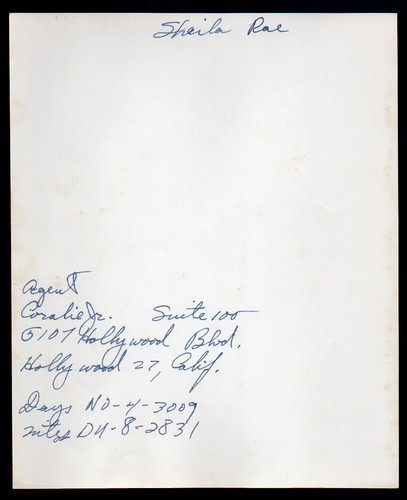 Sheila Rae
Agent
Coralie Jr. Suite 100
5107 Hollywood Blvd.
Hollywood 27, Calif.
Days NO-4-3009
Nites DU-8-2831